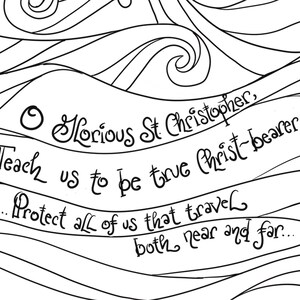 O Glorious St Christopher,
Teach us to be true Christ-bearer
...Protect all of us that travel
both near and far...